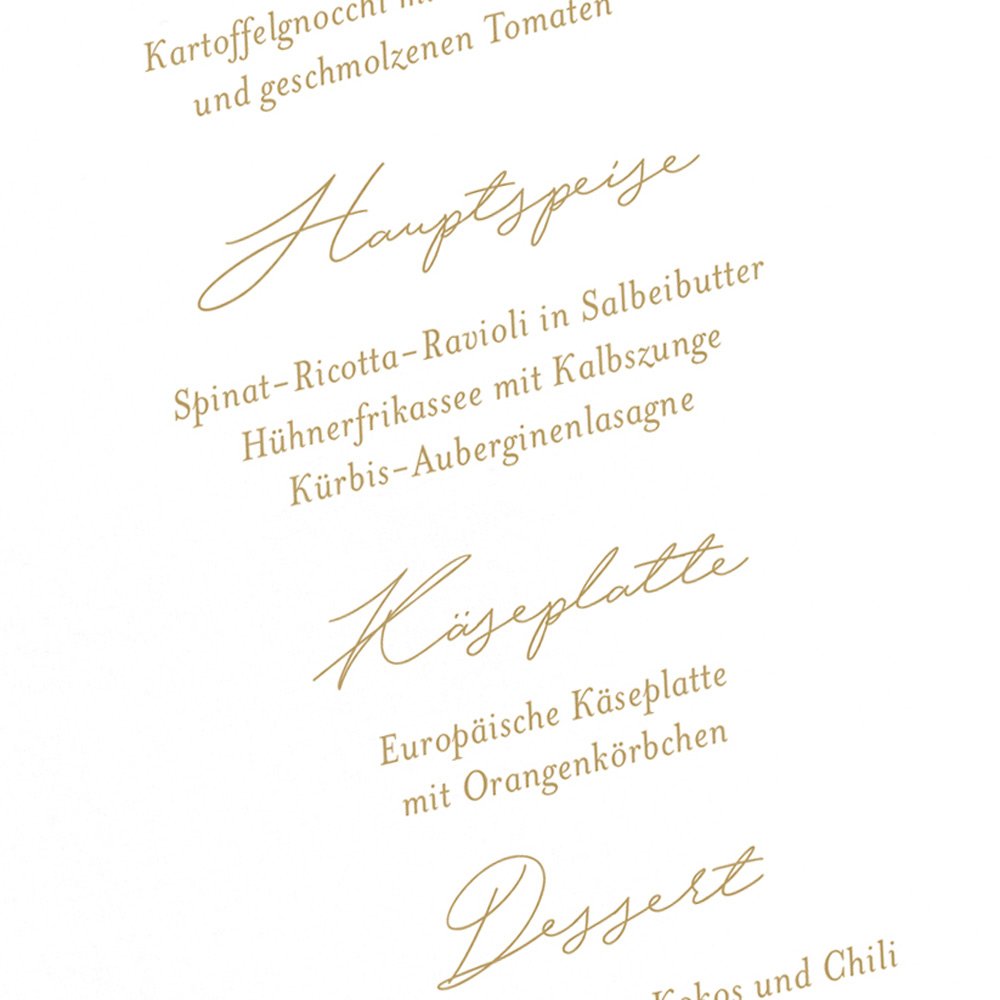 Kartoffelgnocchi
und geschmolzenen Tomaten
Hauptspeise
Spinat-Ricotta-Ravioli in Salbeibutter
Hühnerfrikassee mit Kalbszunge
Kürbis-Auberginenlasagne
Käseplatte
Europäische Käseplatte
mit Orangenkörbchen
Dessert
Kokos und Chili